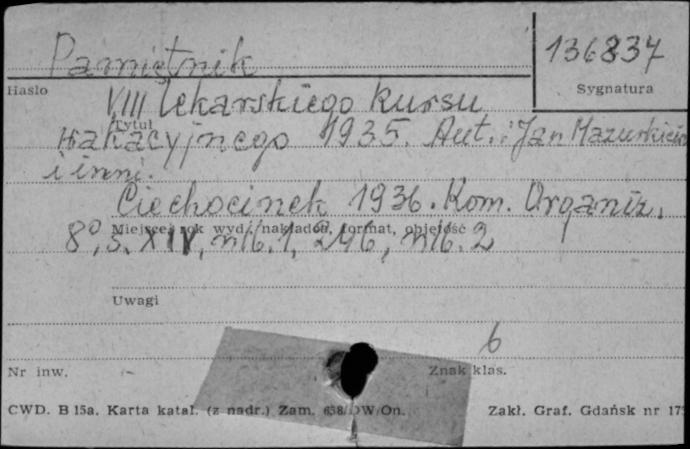 Pamiętnik
136837
Hasło
Sygnatura
VIII lekarskiego kursu
Tytuł
wakacyjnego 1935. Aut.: Jan Mazurkiewicz
i inni.
Ciechocinek 1936. Kom. Organiz.
Miejsce, rok wyd., nakładca, format, objętość
8°, s. XIV, nlb. 1, 246, nlb. 2
Uwagi
6
Nr inw.
Znak klas.
CWD. B 15a. Karta katal. (z nadr.) Zam. 658/DW/On.
Zakł. Graf. Gdańsk nr 175